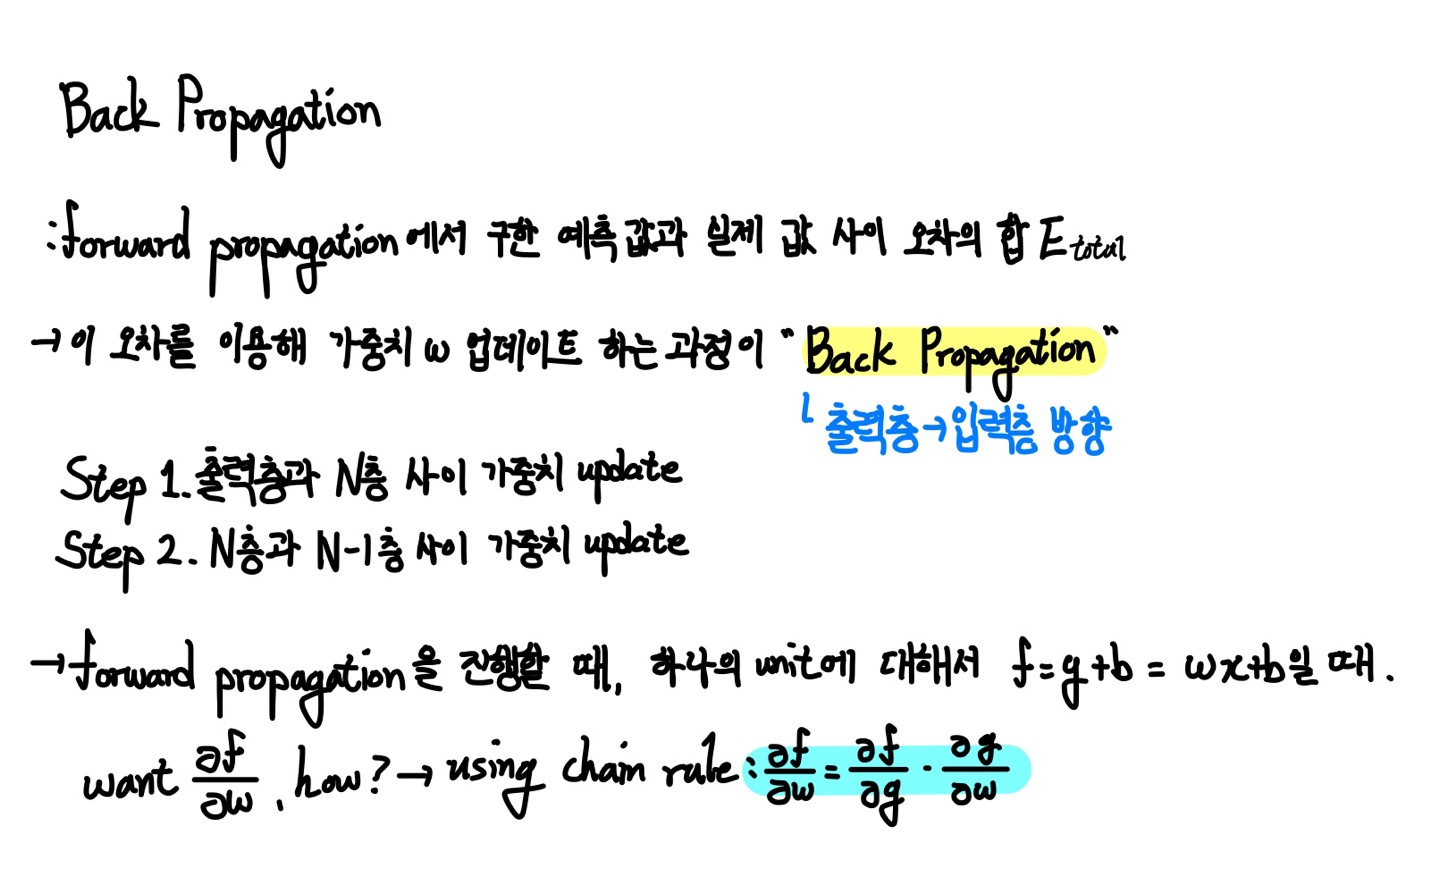 Back Propagation
: forward propagation에서 구한 예측값과 실제 값 사이 오차의 합 E_total
→ 이 오차를 이용해 가중치 w 업데이트 하는 과정이 "Back Propagation"
└ 출력층→입력층 방향
Step 1. 출력층과 N층 사이 가중치 update
Step 2. N층과 N-1층 사이 가중치 update
→ forward propagation을 진행할 때, 하나의 unit에 대해서 f=g+b = wx+b일 때.
want ∂f/∂w, how? → using chain rule: ∂f/∂w = ∂f/∂g · ∂g/∂w